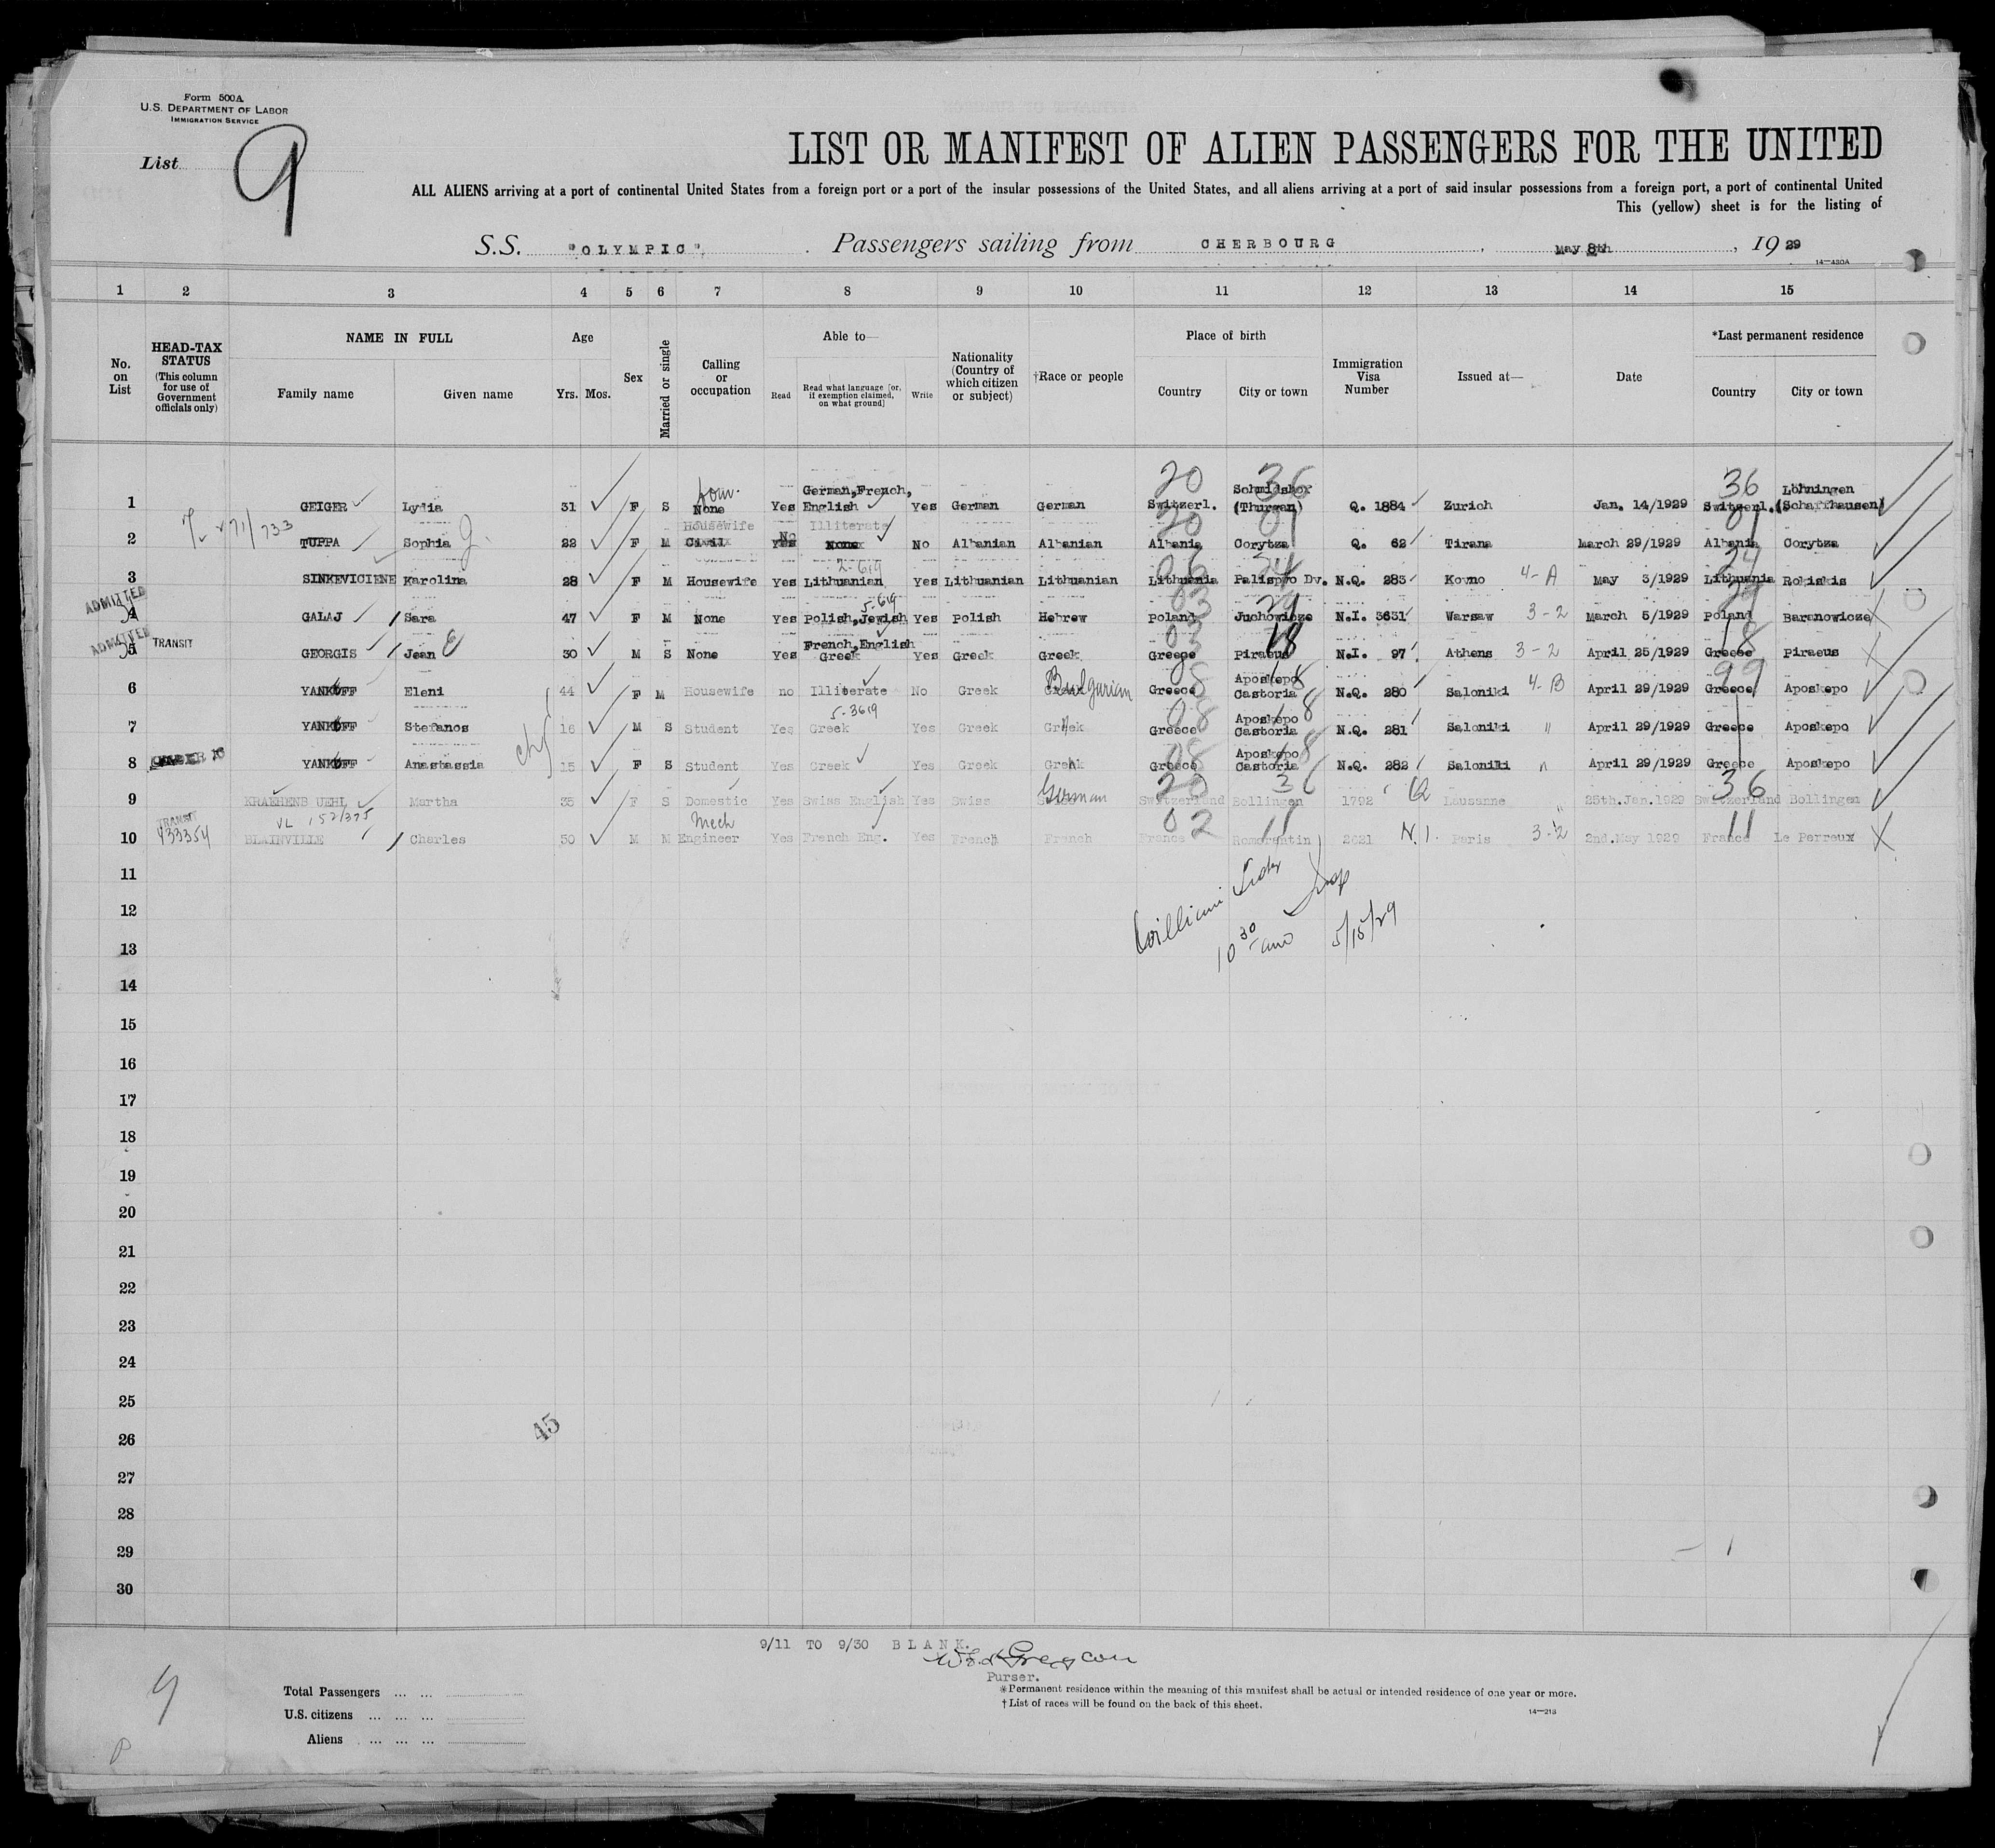 Form 500A
U.S. DEPARTMENT OF LABOR
IMMIGRATION SERVICE
List 9
LIST OR MANIFEST OF ALIEN PASSENGERS FOR THE UNITED
ALL ALIENS arriving at a port of continental United States from a foreign port or a port of the insular possessions of the United States, and all aliens arriving at a port of said insular possessions from a foreign port, a port of continental United
This (yellow) sheet is for the listing of
S.S. "OLYMPIC" Passengers sailing from CHERBOURG, May 8th, 1929
14—430A
1 2 3 4 5 6 7 8 9 10 11 12 13 14 15
No. on List
HEAD-TAX STATUS (This column for use of Government officials only)
NAME IN FULL
Family name Given name
Age
Yrs. Mos.
Sex
Married or single
Calling or occupation
Able to—
Read Read what language [or, if exemption claimed, on what ground] Write
Nationality (Country of which citizen or subject)
†Race or people
Place of birth
Country City or town
Immigration Visa Number
Issued at—
Date
*Last permanent residence
Country City or town
20 36 36
1 GEIGER Lydia 31 F S None Yes German, French, English Yes German German Switzerl. (Thurgau) Q. 1884 Zurich Jan. 14/1929 Switzerl. Löhningen (Schaffhausen)
20 01 01
2 TUPPA Sophia 22 F M Housewife No Illiterate No Albanian Albanian Albania Corytza Q. 62 Tirana March 29/1929 Albania Corytza
2-619
3 SINKEVICIENE Karolina 28 F M Housewife Yes Lithuanian Yes Lithuanian Lithuanian Lithuania Dv. N.Q. 283 Kovno 4-A May 3/1929 Lithuania Rokiskis
ADMITTED
5-619
4 GALAJ Sara 47 F M None Yes Polish, Jewish Yes Polish Hebrew Poland Juchowicze N.I. 3631 Warsaw 3-2 March 5/1929 Poland Baranowicze
ADMITTED TRANSIT
5 GEORGIS Jean 30 M S None Yes French, English Greek Yes Greek Greek Greece Piraeus N.I. 97 Athens 3-2 April 25/1929 Greece Piraeus
6 YANKOFF Eleni 44 F M Housewife no Illiterate No Greek Bulgarian Greece Aposkepo Castoria N.Q. 280 Saloniki 4-B April 29/1929 Greece Aposkepo
5-3619
7 YANKOFF Stefanos 16 M S Student Yes Greek Yes Greek Greek Greece Aposkepo Castoria N.Q. 281 Saloniki " April 29/1929 Greece Aposkepo
8 YANKOFF Anastassia 15 F S Student Yes Greek Yes Greek Greek Greece Aposkepo Castoria N.Q. 282 Saloniki " April 29/1929 Greece Aposkepo
20 36 36
9 KRAEHENBUEHL Martha 35 F S Domestic Yes Swiss English Yes Swiss German Switzerland Bollingen 1792 Q Lausanne " 25th.Jan.1929 Switzerland Bollingen
TRANSIT
433354
Mech
10 BLAINVILLE Charles 50 M M Engineer Yes French Eng. Yes French French France Romorantin 2021 N.I. Paris 3-2 2nd.May 1929 France Le Perreux
11
William
12
10 30 am 5/15/29
13
14
15
16
17
18
19
20
21
22
23
24
25
45
26
27
28
29
30
9/11 TO 9/30 BLANK.
Purser.
9
Total Passengers
U.S. citizens
Aliens
*Permanent residence within the meaning of this manifest shall be actual or intended residence of one year or more.
†List of races will be found on the back of this sheet.
14—213